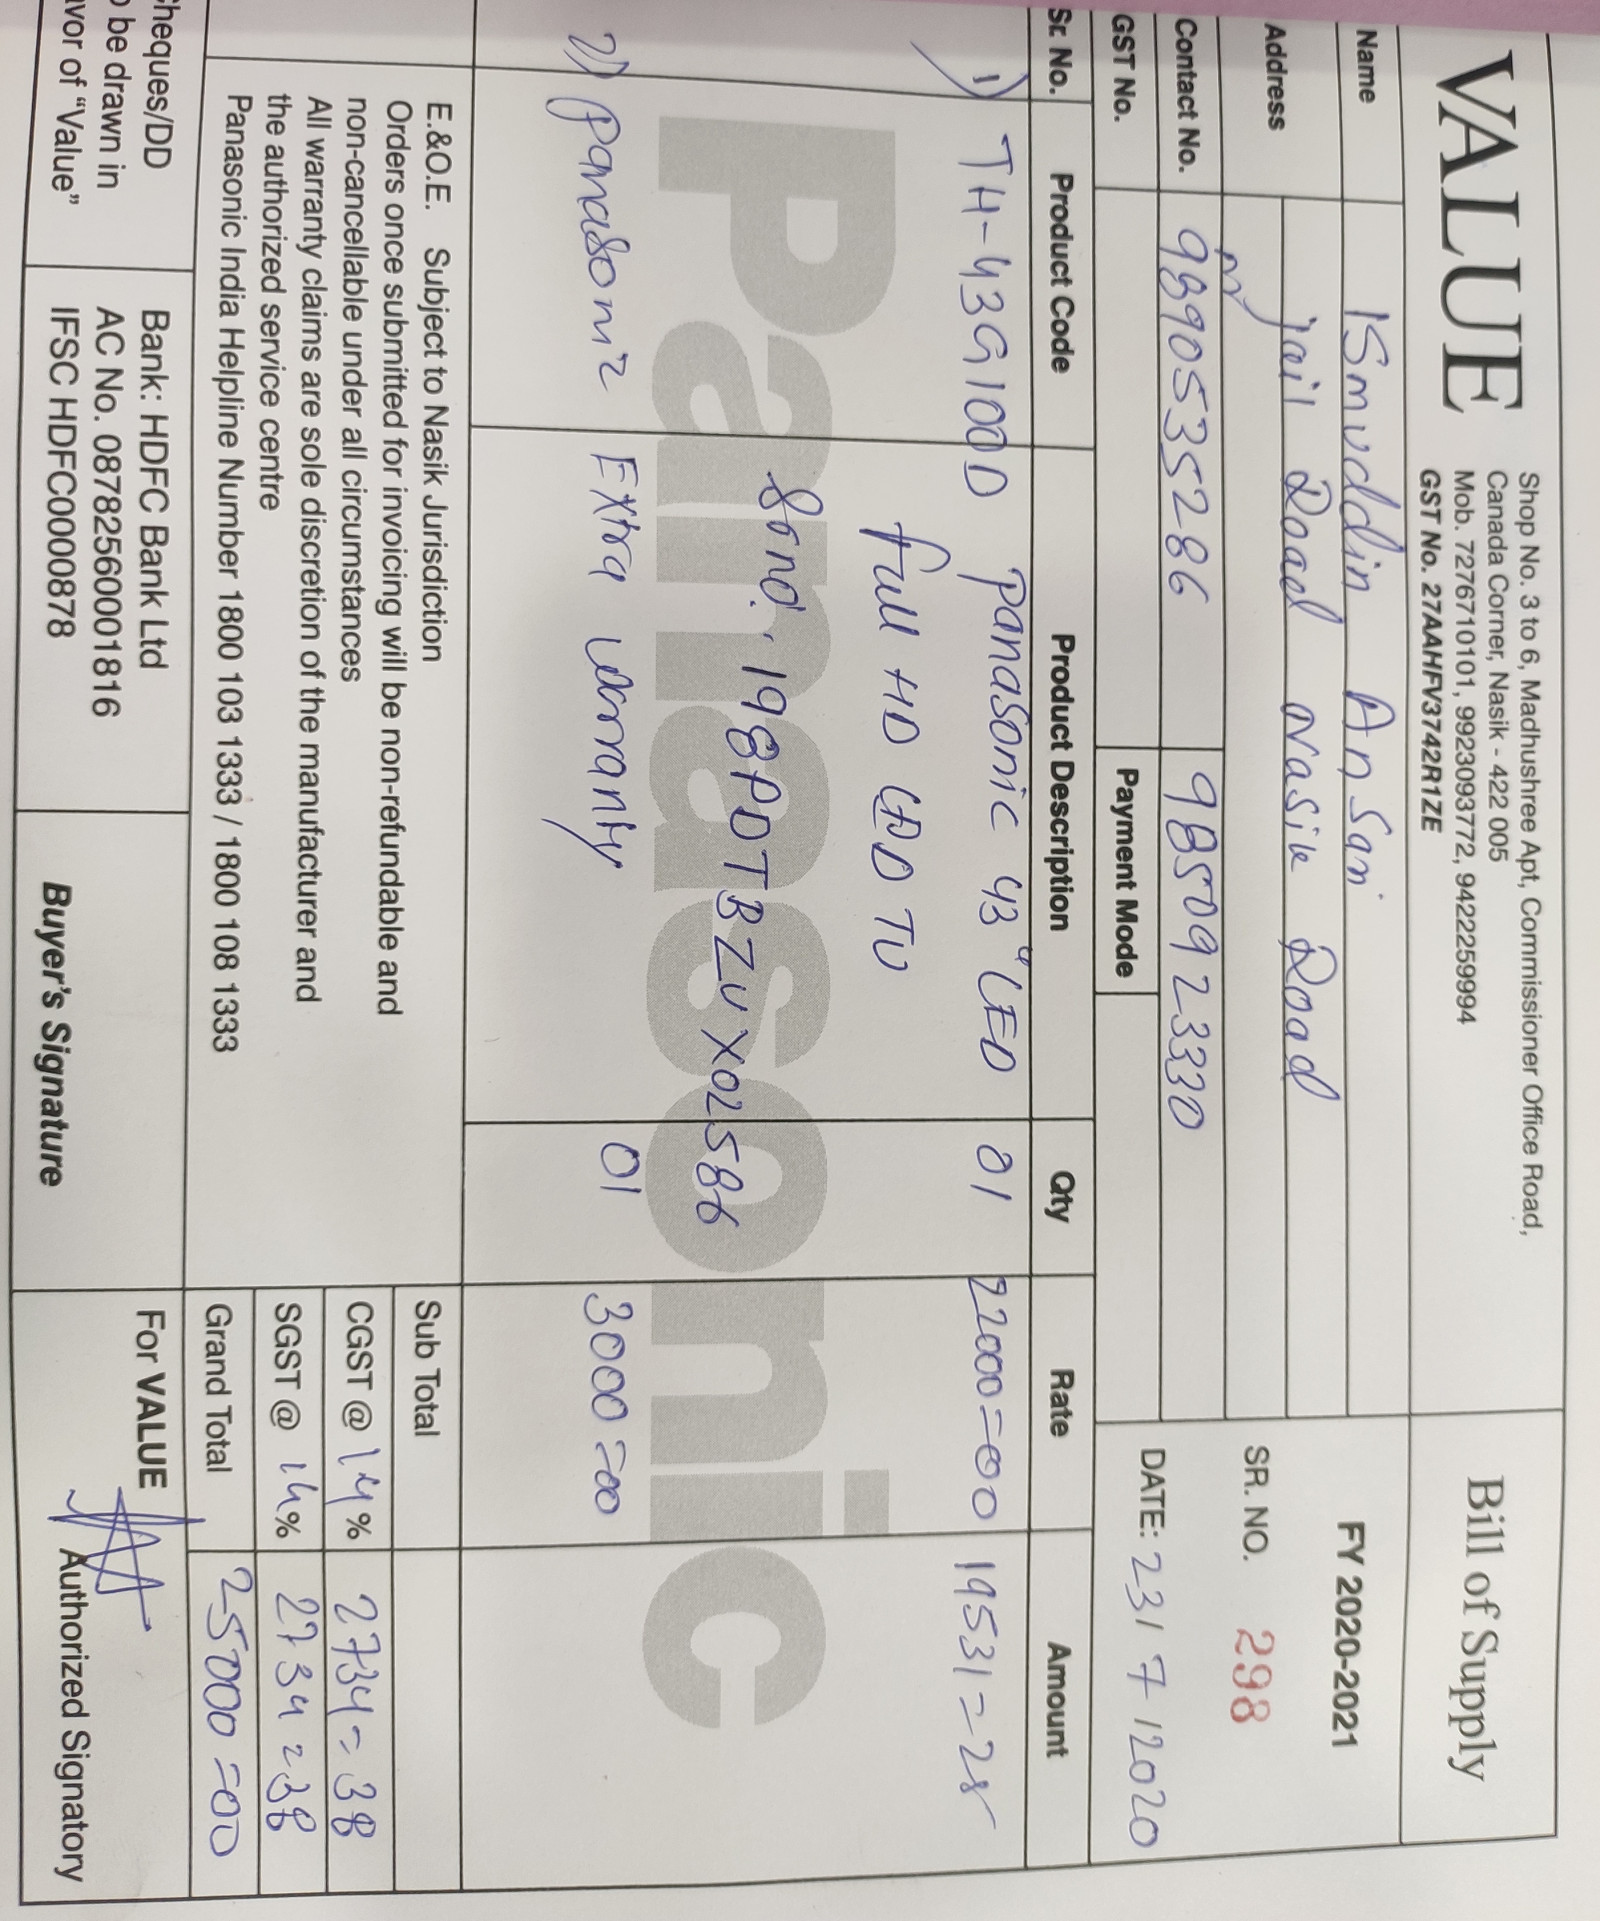 VALUE
Shop No. 3 to 6, Madhushree Apt, Commissioner Office Road,
Canada Corner, Nasik - 422 005
Mob. 7276710101, 9923093772, 9422259994
GST No. 27AAHFV3742R1ZE
Bill of Supply
Name Ismuddin Ansari
Address Jail Road Nasik Road
Contact No. 9890535286 9850923330
GST No. Payment Mode
FY 2020-2021
SR. NO. 298
DATE: 23/7/2020
Sr. No. Product Code Product Description Qty Rate Amount
1) TH-43G100D Panasonic 43" LED 01 22000=00 19531=25
Full HD LED TV
198PDTBZVX02586
2) Panasonic Extra warranty 01 3000=00
Panasonic
E.&O.E. Subject to Nasik Jurisdiction
Orders once submitted for invoicing will be non-refundable and
non-cancellable under all circumstances
All warranty claims are sole discretion of the manufacturer and
the authorized service centre
Panasonic India Helpline Number 1800 103 1333 / 1800 108 1333
Sub Total
CGST @ 14% 2734=38
SGST @ 14% 2734=38
Grand Total 25000=00
heques/DD
be drawn in
vor of "Value"
Bank: HDFC Bank Ltd
AC No. 08782560001816
IFSC HDFC0000878
Buyer's Signature
For VALUE
Authorized Signatory